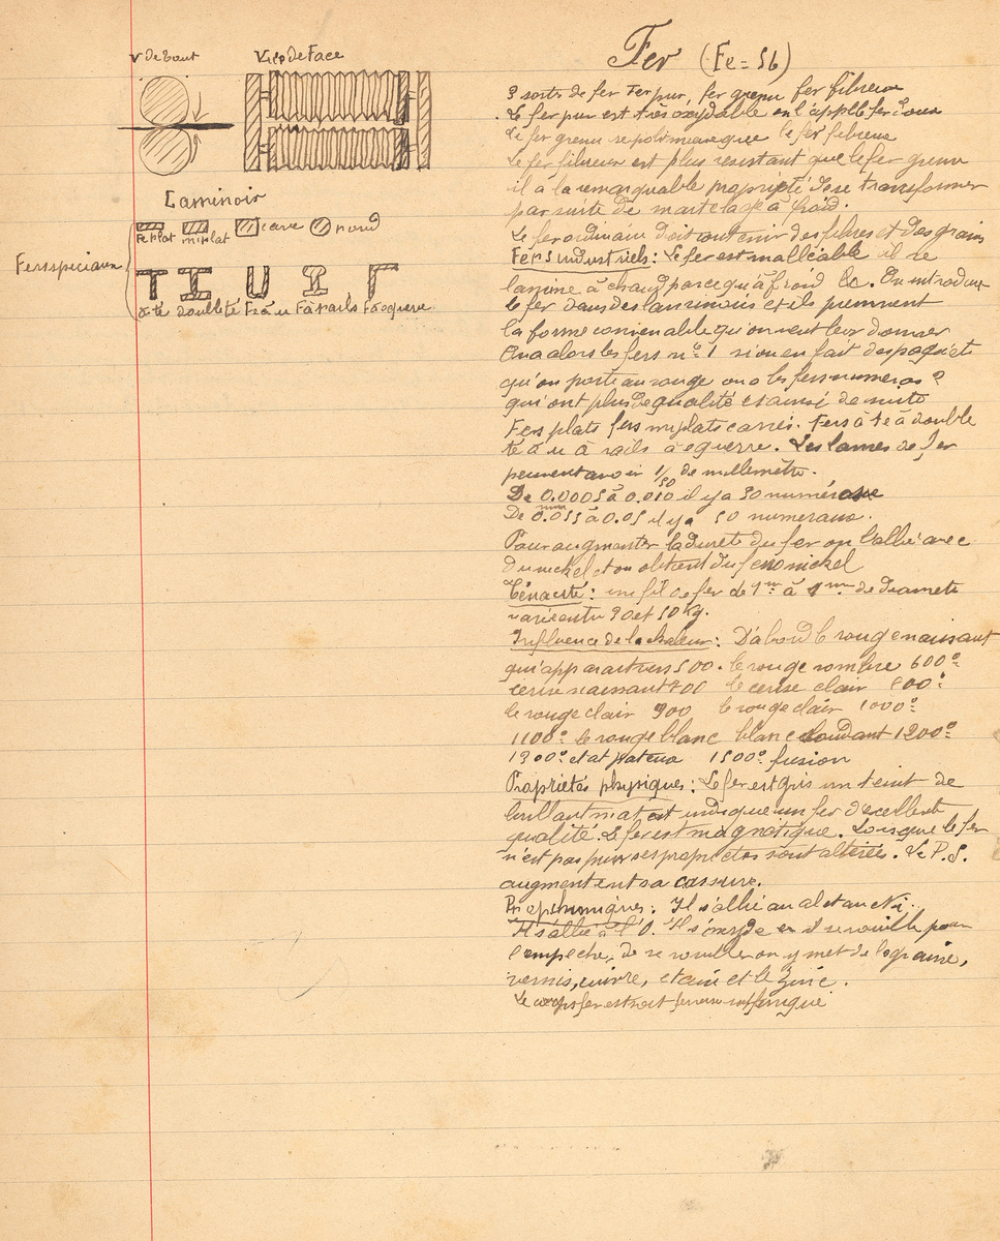 v de bout Vue de Face
Laminoir
fe plat miplat carré rond
Fers spéciaux
à té double té F à u F à rails F à equerre
Fer (Fe = 56)
3 sortes de fer Fer pur, fer grenu fer fibreux
Le fer pur est très oxydable on l'appelle fer doux
Le fer grenu se polit mieux que le fer fibreux
Le fer fibreux est plus resistant que le fer grenu
il a la remarquable propriété de se transformer
par suite de martelage à froid.
Le fer ordinaire doit contenir des fibres et des grains
Fers industriels : Le fer est malléable il se
lamine à chaud parce qu'à froid il . On introduit
le fer dans des laminoirs et ils prennent
la forme convenable qu'on veut leur donner
On a alors les fers n° 1 si on en fait des paquets
qu'on porte au rouge on a les fers numeros 2
qui ont plus de qualité et ainsi de suite
Fers plats fers miplats carrés. Fers à té à double
té à u à rails à equerre. Les lames de fer
peuvent avoir 1/50 de millemètre.
De 0.0005 à 0.010 il y a 30 numéros
De 0.055 à 0.05 il y a 50 numeraux.
Pour augmenter la dureté du fer on l'allie avec
du nickel et on obtient du ferro nickel
Ténacité : un fil de fer de 1m à 1mm de diametre
varie entre 30 et 50 Kg.
Influence de la chaleur : D'abord le rouge naissant
qui apparait vers 500. le rouge sombre 600°
cerise naissant 700 le cerise clair 800°
le rouge clair 900 le rouge clair 1000°
1100° le rouge blanc blanc soudant 1200°
1300° etat pateux 1500° fusion
Propriétés physiques : Le fer est gris un teint de
brillant mat et indique un fer d'excellent
qualité. Le fer est magnetique. Lorsque le fer
n'est pas pur ses proprietes sont altérées. Le P. S.
augmentent sa cassure.
Pr. chimiques : Il s'allie au al et au Ni.
Il s'allie à l'O. Il s'oxyde et il se rouille pour
l'empeche, de se rouiller on y met de la graine,
vernis, cuivre, etain et le Zinc.
Le corps fer est soit ferreux soit ferrique